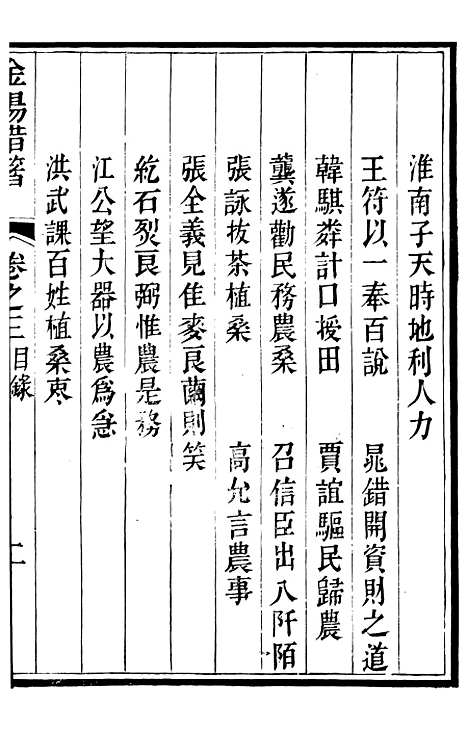 淮南子天時地利人力
王符以一奉百說　晁錯開資財之道
韓騏麰計口授田　賈誼驅民歸農
龔遂勸民務農桑　召信臣出入阡陌
張詠拔茶植桑　高允言農事
張全義見佳麥良繭則笑
紇石烈良弼惟農是務
江公望大器以農為急
洪武課百姓植桑棗
金湯借箸　卷之三目錄　二